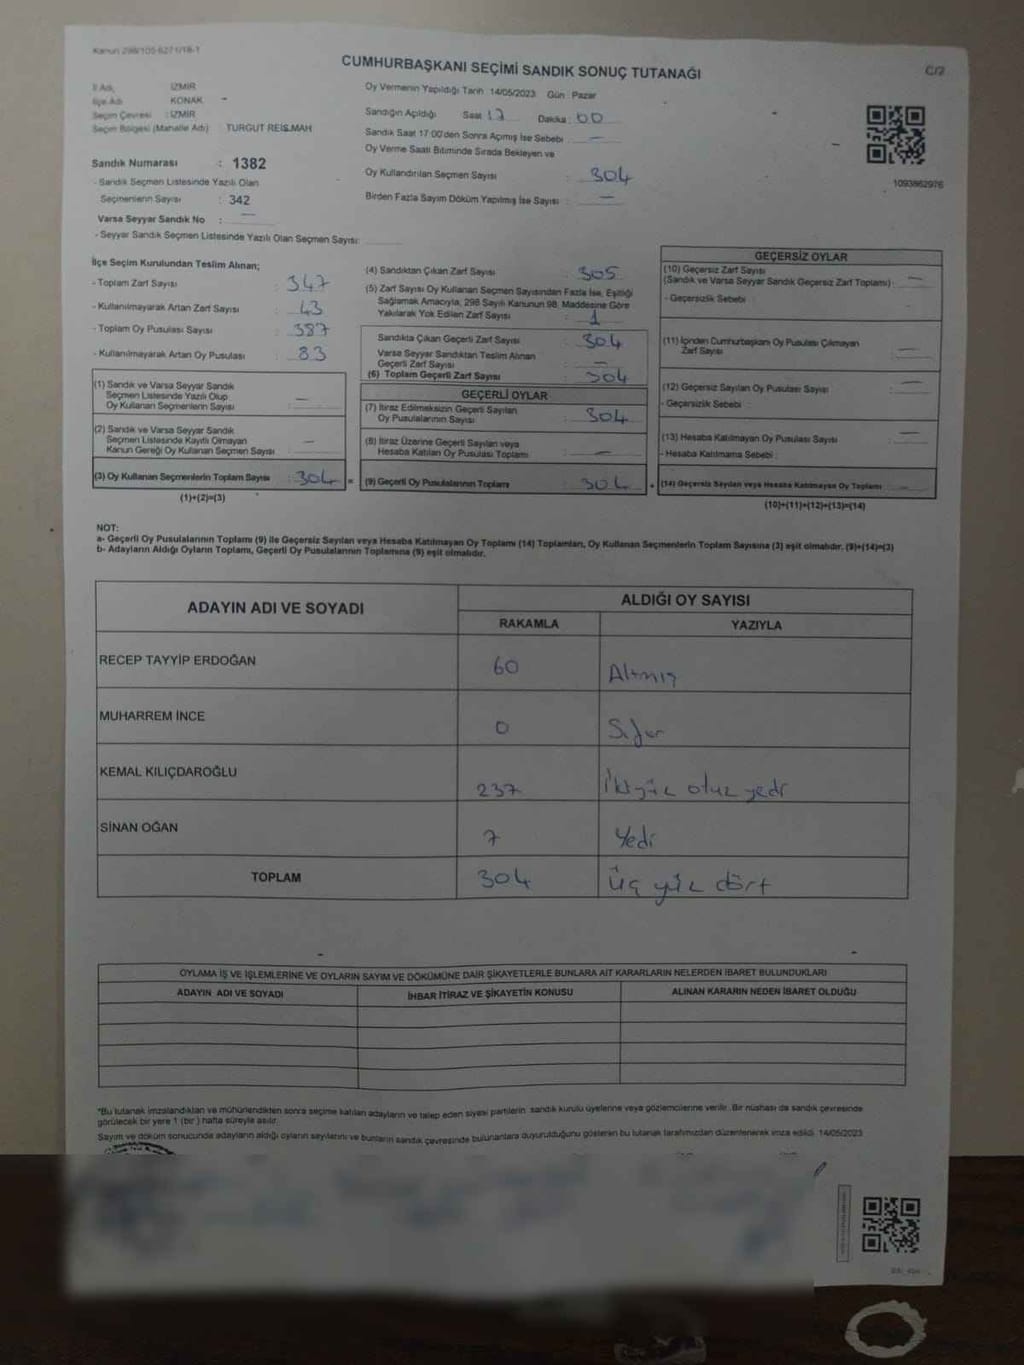 Kanun 298/105-6271/18-1
CUMHURBAŞKANI SEÇİMİ SANDIK SONUÇ TUTANAĞI
C/2
İl Adı, İZMİR
İlçe Adı KONAK
Seçim Çevresi : İZMİR
Seçim Bölgesi (Mahalle Adı) TURGUT REİS MAH
Oy Vermenin Yapıldığı Tarih 14/05/2023 Gün : Pazar
Sandığın Açıldığı Saat 17 Dakika : 00
Sandık Saat 17:00'den Sonra Açılmış İse Sebebi —
Oy Verme Saati Bitiminde Sırada Bekleyen ve
Oy Kullandırılan Seçmen Sayısı : 304
Birden Fazla Sayım Döküm Yapılmış İse Sayısı : —
1093862976
Sandık Numarası : 1382
- Sandık Seçmen Listesinde Yazılı Olan
Seçmenlerin Sayısı : 342
Varsa Seyyar Sandık No : —
- Seyyar Sandık Seçmen Listesinde Yazılı Olan Seçmen Sayısı:
İlçe Seçim Kurulundan Teslim Alınan;
- Toplam Zarf Sayısı : 347
- Kullanılmayarak Artan Zarf Sayısı : 43
- Toplam Oy Pusulası Sayısı : 387
- Kullanılmayarak Artan Oy Pusulası : 83
(1) Sandık ve Varsa Seyyar Sandık
Seçmen Listesinde Yazılı Olup
Oy Kullanan Seçmenlerin Sayısı : —
(2) Sandık ve Varsa Seyyar Sandık
Seçmen Listesinde Kayıtlı Olmayan
Kanun Gereği Oy Kulanan Seçmen Sayısı : —
(3) Oy Kullanan Seçmenlerin Toplam Sayısı : 304
(1)+(2)=(3)
(4) Sandıktan Çıkan Zarf Sayısı : 305
(5) Zarf Sayısı Oy Kullanan Seçmen Sayısından Fazla İse, Eşitliği
Sağlamak Amacıyla, 298 Sayılı Kanunun 98. Maddesine Göre
Yakılarak Yok Edilen Zarf Sayısı : 1
Sandıkta Çıkan Geçerli Zarf Sayısı : 304
Varsa Seyyar Sandıktan Teslim Alınan
Geçerli Zarf Sayısı : —
(6) Toplam Geçerli Zarf Sayısı : 304
GEÇERLİ OYLAR
(7) İtiraz Edilmeksizin Geçerli Sayılan
Oy Pusulalarının Sayısı : 304
(8) İtiraz Üzerine Geçerli Sayılan veya
Hesaba Katılan Oy Pusulası Toplamı : —
= (9) Geçerli Oy Pusulalarının Toplamı : 304
GEÇERSİZ OYLAR
(10) Geçersiz Zarf Sayısı
(Sandık ve Varsa Seyyar Sandık Geçersiz Zarf Toplamı) : —
- Geçersizlik Sebebi :
(11) İçinden Cumhurbaşkanı Oy Pusulası Çıkmayan
Zarf Sayısı : —
(12) Geçersiz Sayılan Oy Pusulası Sayısı : —
- Geçersizlik Sebebi :
(13) Hesaba Katılmayan Oy Pusulası Sayısı : —
- Hesaba Katılmama Sebebi :
+ (14) Geçersiz Sayılan veya Hesaba Katılmayan Oy Toplamı : —
(10)+(11)+(12)+(13)=(14)
NOT:
a- Geçerli Oy Pusulalarının Toplamı (9) ile Geçersiz Sayılan veya Hesaba Katılmayan Oy Toplamı (14) Toplamları, Oy Kullanan Seçmenlerin Toplam Sayısına (3) eşit olmalıdır. (9)+(14)=(3)
b- Adayların Aldığı Oyların Toplamı, Geçerli Oy Pusulalarının Toplamına (9) eşit olmalıdır.
ADAYIN ADI VE SOYADI ALDIĞI OY SAYISI
RAKAMLA YAZIYLA
RECEP TAYYİP ERDOĞAN 60 Altmış
MUHARREM İNCE 0 Sıfır
KEMAL KILIÇDAROĞLU 237 İkiyüz otuz yedi
SİNAN OĞAN 7 Yedi
TOPLAM 304 Üç yüz dört
OYLAMA İŞ VE İŞLEMLERİNE VE OYLARIN SAYIM VE DÖKÜMÜNE DAİR ŞİKAYETLERLE BUNLARA AİT KARARLARIN NELERDEN İBARET BULUNDUKLARI
ADAYIN ADI VE SOYADI İHBAR İTİRAZ VE ŞİKAYETİN KONUSU ALINAN KARARIN NEDEN İBARET OLDUĞU
*Bu tutanak imzalandıktan ve mühürlendikten sonra seçime katılan adayların ve talep eden siyasi partilerin sandık kurulu üyelerine veya gözlemcilerine verilir. Bir nüshası da sandık çevresinde
görülecek bir yere 1 (bir) hafta süreyle asılır.
Sayım ve döküm sonucunda adayların aldığı oyların sayılarını ve bunların sandık çevresinde bulunanlara duyurulduğunu gösteren bu tutanak tarafımızdan düzenlenerek imza edildi. 14/05/2023